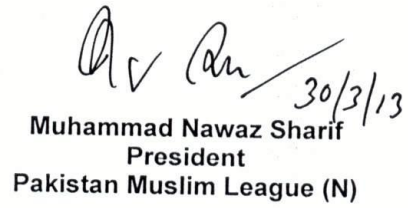 30/3/13
Muhammad Nawaz Sharif
President
Pakistan Muslim League (N)